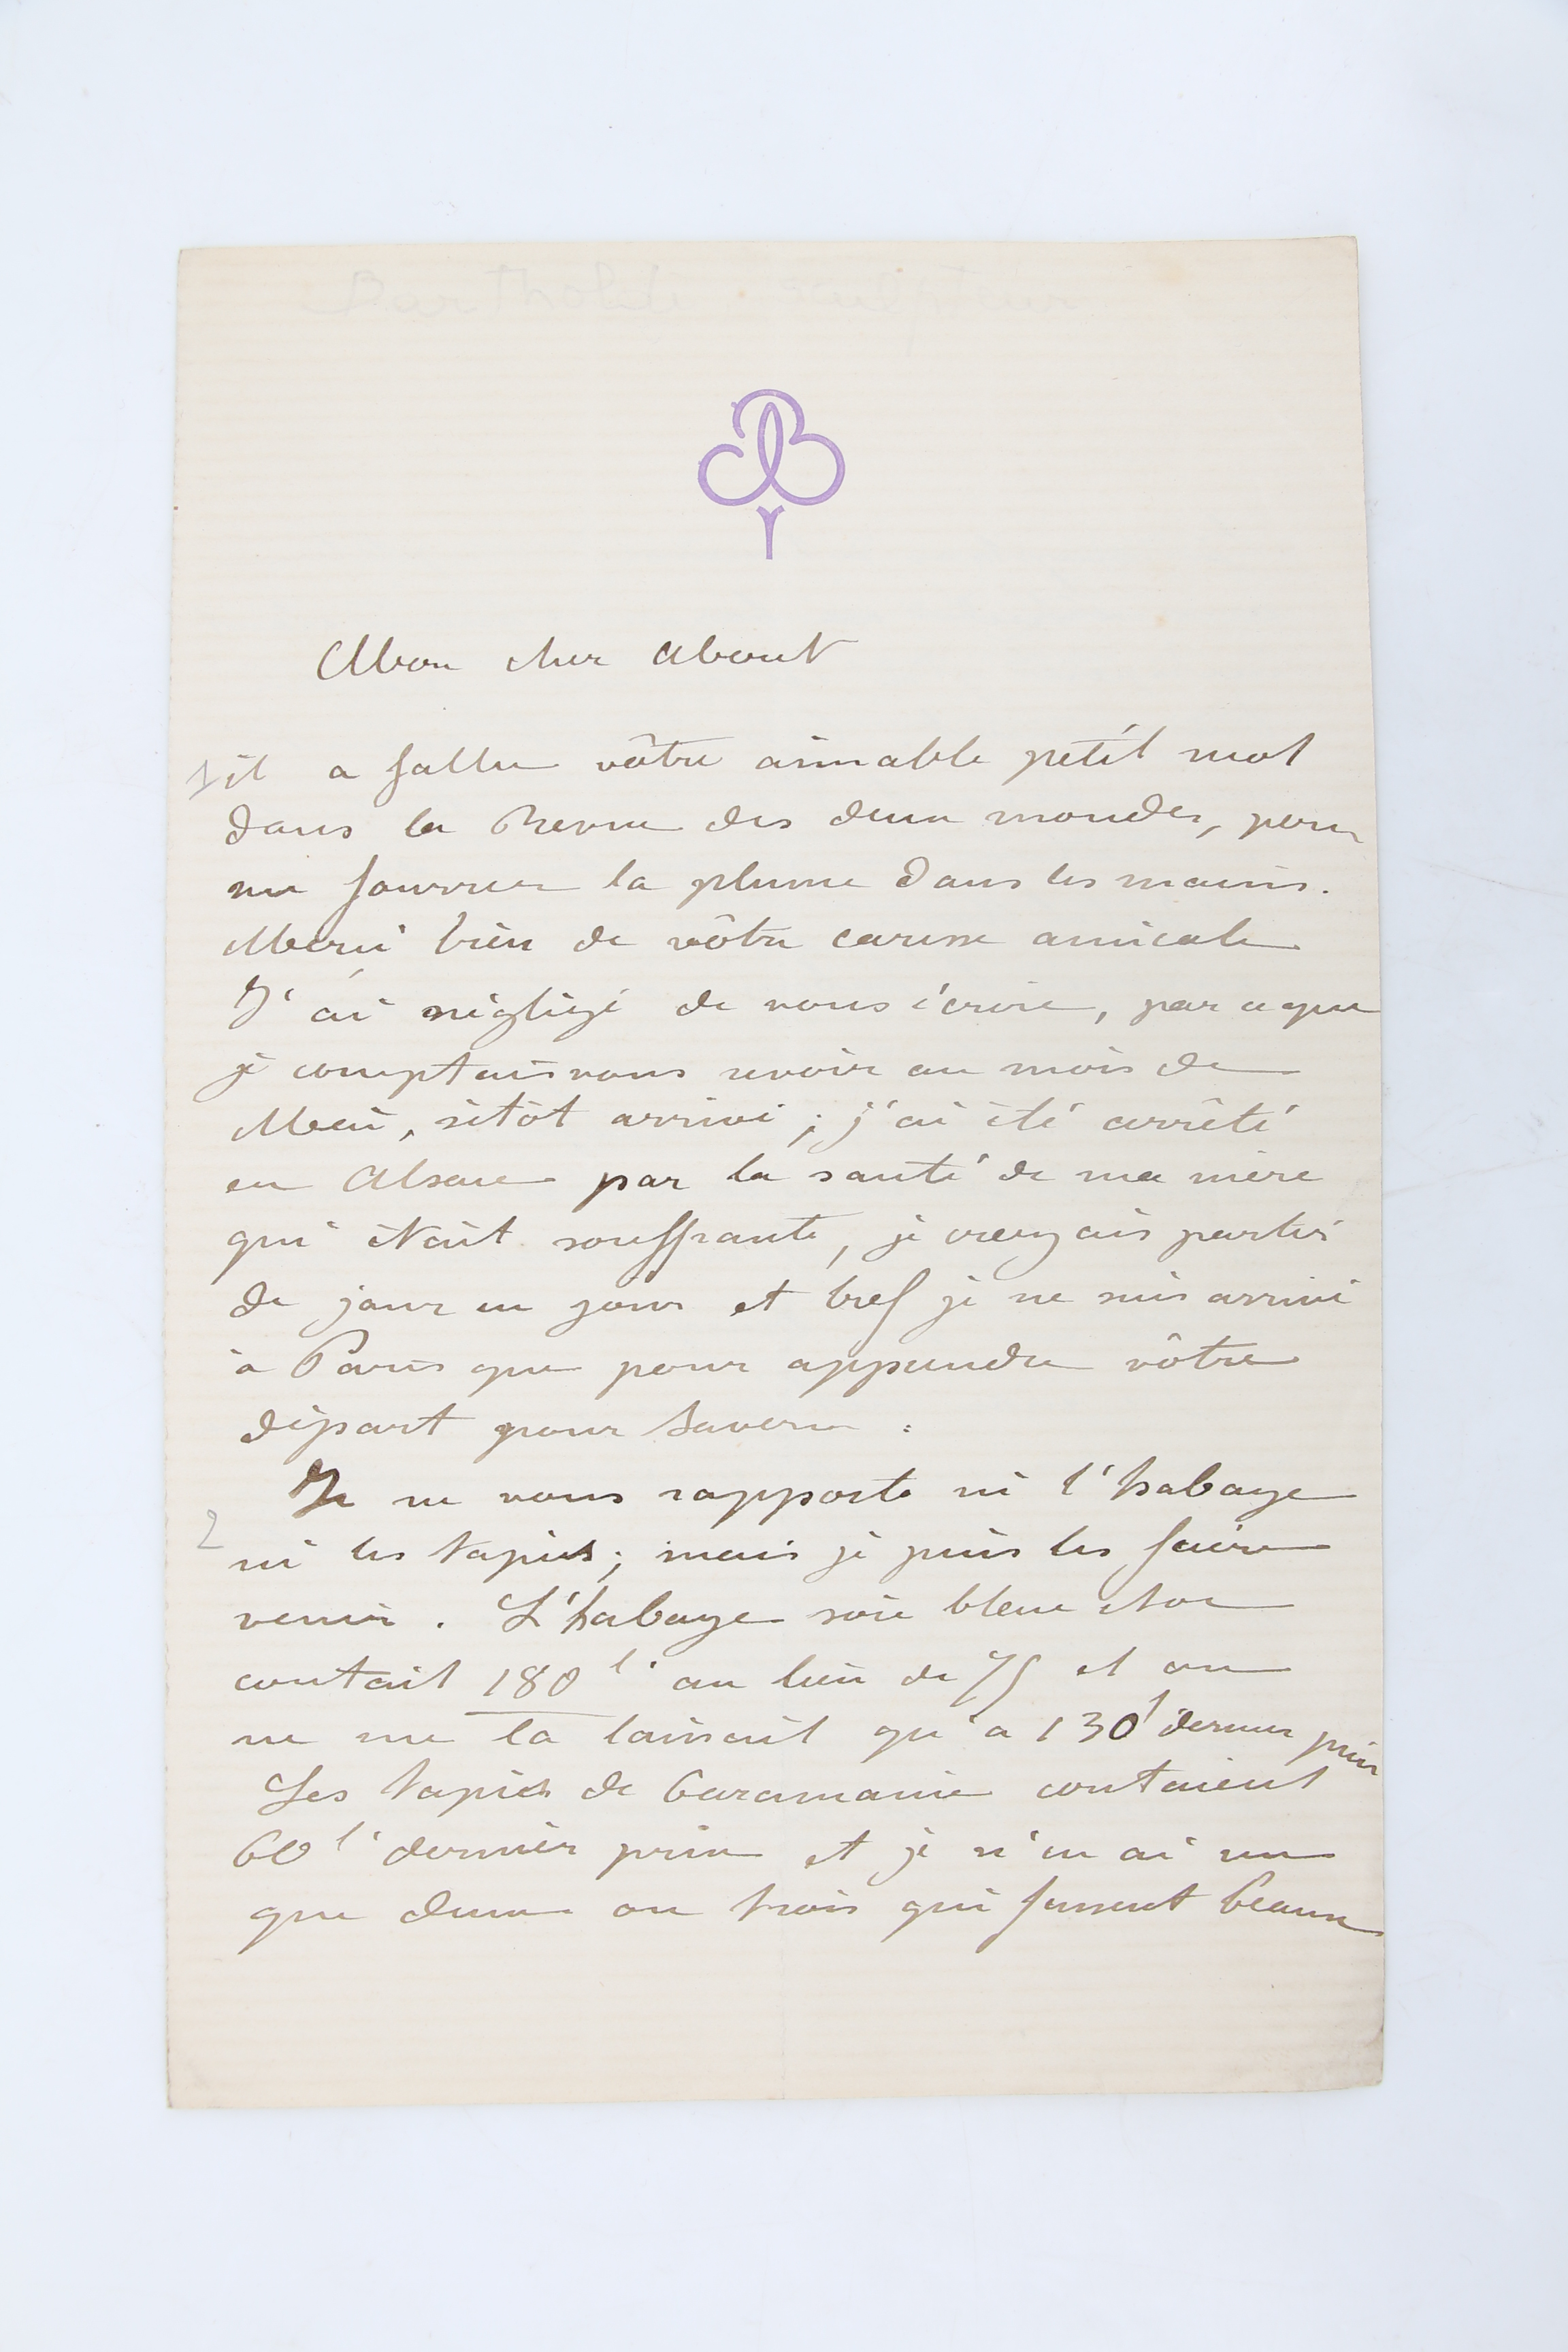 Bartholdi sculpteur
Mon cher About
1 il a fallu vôtre aimable petit mot
dans la Revue des deux mondes, pour
me fourrer la plume dans les mains.
Merci bien de vôtre caresse amicale
J'ai négligé de vous écrire, par ce que
je comptais vous revoir au mois de
Mai, sitôt arrivé ; j'ai été arrêté
en Alsace par la santé de ma mère
qui était souffrante, je croyais partir
de jour en jour et bref je ne suis arrivé
à Paris que pour apprendre vôtre
départ pour Saverne :
Je ne vous rapporte ni l'habaye
2 ni les tapis ; mais je puis les faire
venir . L'habaye soie bleue et or
coutait 180 l. au lieu de 75 et on
ne me la laissait qu'a 130 l dernier prix
Les tapis de Caramanie coutaient
60 l. dernier prix et je n'en ai vu
que deux ou trois qui fussent beaux